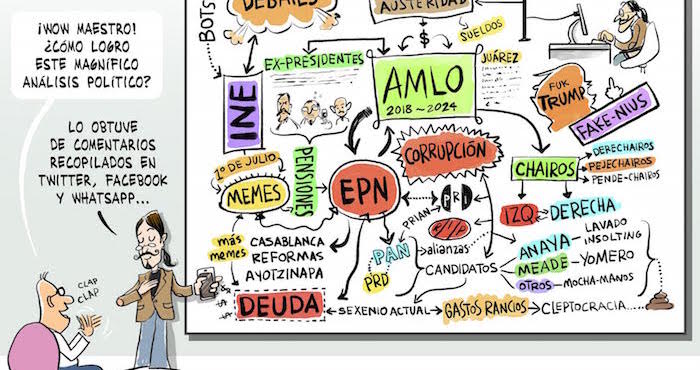 ¡WOW MAESTRO!
¿CÓMO LOGRO
ESTE MAGNÍFICO
ANÁLISIS POLÍTICO?
LO OBTUVE
DE COMENTARIOS
RECOPILADOS EN
TWITTER, FACEBOOK
Y WHATSAPP...
CLAP
CLAP
BOTS
DEBATES
AUSTERIDAD
$
SUELDOS
EX-PRESIDENTES
AMLO
2018~2024
JUÁREZ
FUK
TRUMP
FAKE-NIUS
INE
1º DE JULIO
MEMES
PENSIONES
EPN
CORRUPCIÓN
CHAIROS
DERECHAIROS
PEJECHAIROS
PENDE-CHAIROS
PRI
PRIAN
IZQ
DERECHA
más
memes
CASABLANCA
REFORMAS
AYOTZINAPA
PAN
PRD
alianzas
CANDIDATOS
ANAYA
LAVADO
INSOLTING
MEADE
YOMERO
OTROS
MOCHA-MANOS
DEUDA
SEXENIO ACTUAL
GASTOS RANCIOS
CLEPTOCRACIA